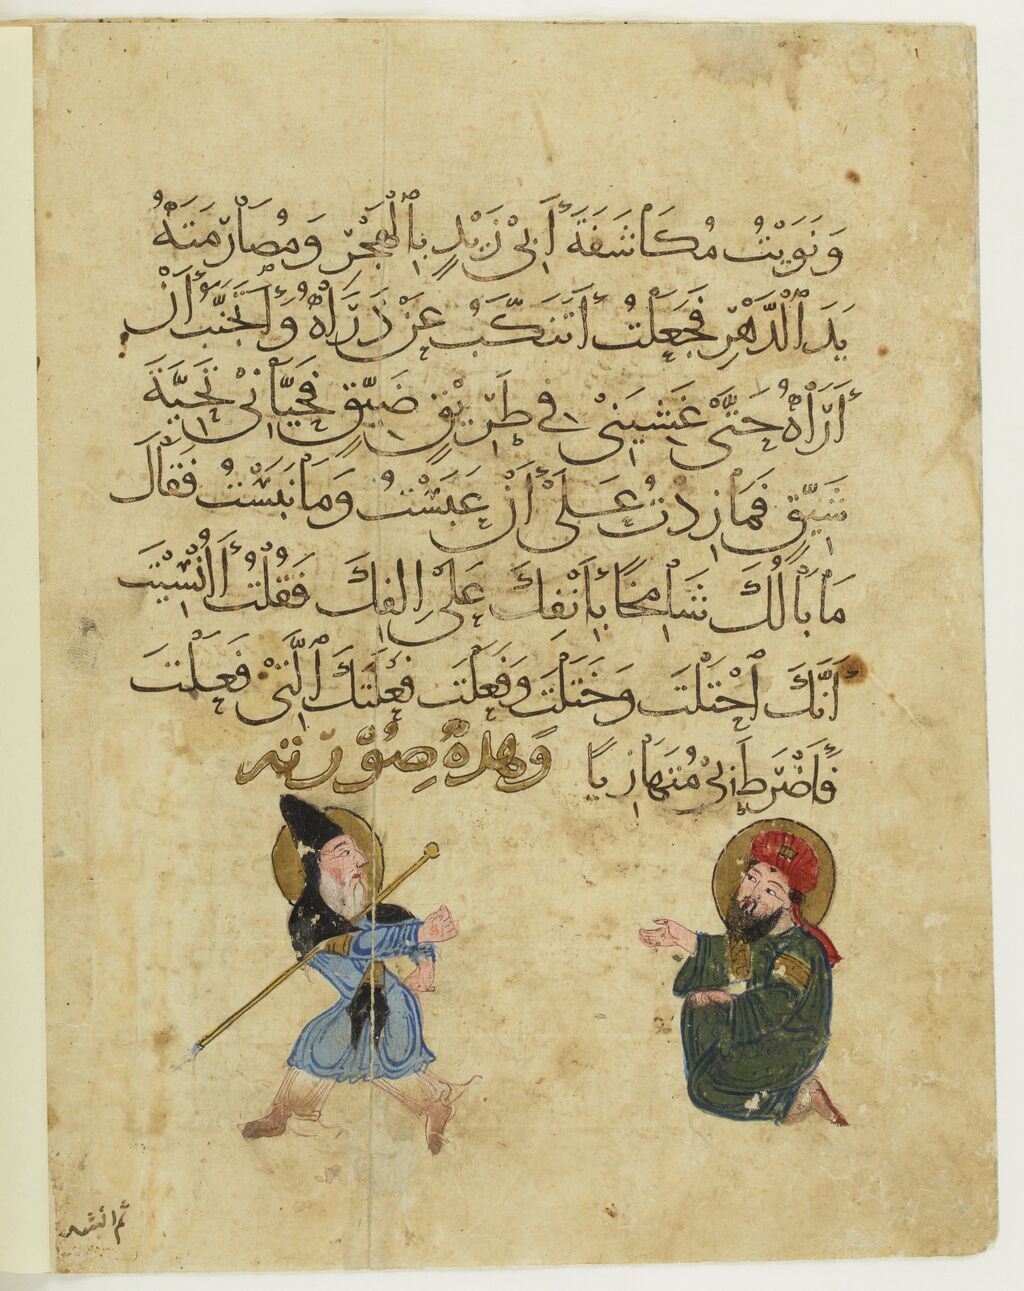 وَنَوَيْتُ مُكَاشَفَةَ أَبِيْ زَيْدٍ بِالْهَجْرِ وَمُصَارَمَتَهُ
يَدَ الدَّهْرِ فَجَعَلْتُ أَتَنَكَّبُ عَنْ ذَرَاهُ وَأَتَجَنَّبُ أَنْ
أَرَاهُ حَتَّى غَشِيَنِيْ فِي طَرِيْقٍ ضَيِّقٍ فَحَيَّانِيْ تَحِيَّةَ
شَيِّقٍ فَمَا زِدْتُ عَلَى أَنْ عَبَسْتُ وَمَا نَبَسْتُ فَقَالَ
مَا بَالُكَ شَامِخًا بِأَنْفِكَ عَلَى إِلْفِكَ فَقُلْتُ أَنَسِيْتَ
أَنَّكَ احْتَلْتَ وَخَتَلْتَ وَفَعَلْتَ فَعْلَتَكَ الَّتِيْ فَعَلْتَ
فَأَضْرَطَ بِيْ مُتَهَازِيًا وَهٰذِهِ صُوْرَته
ثم انشد